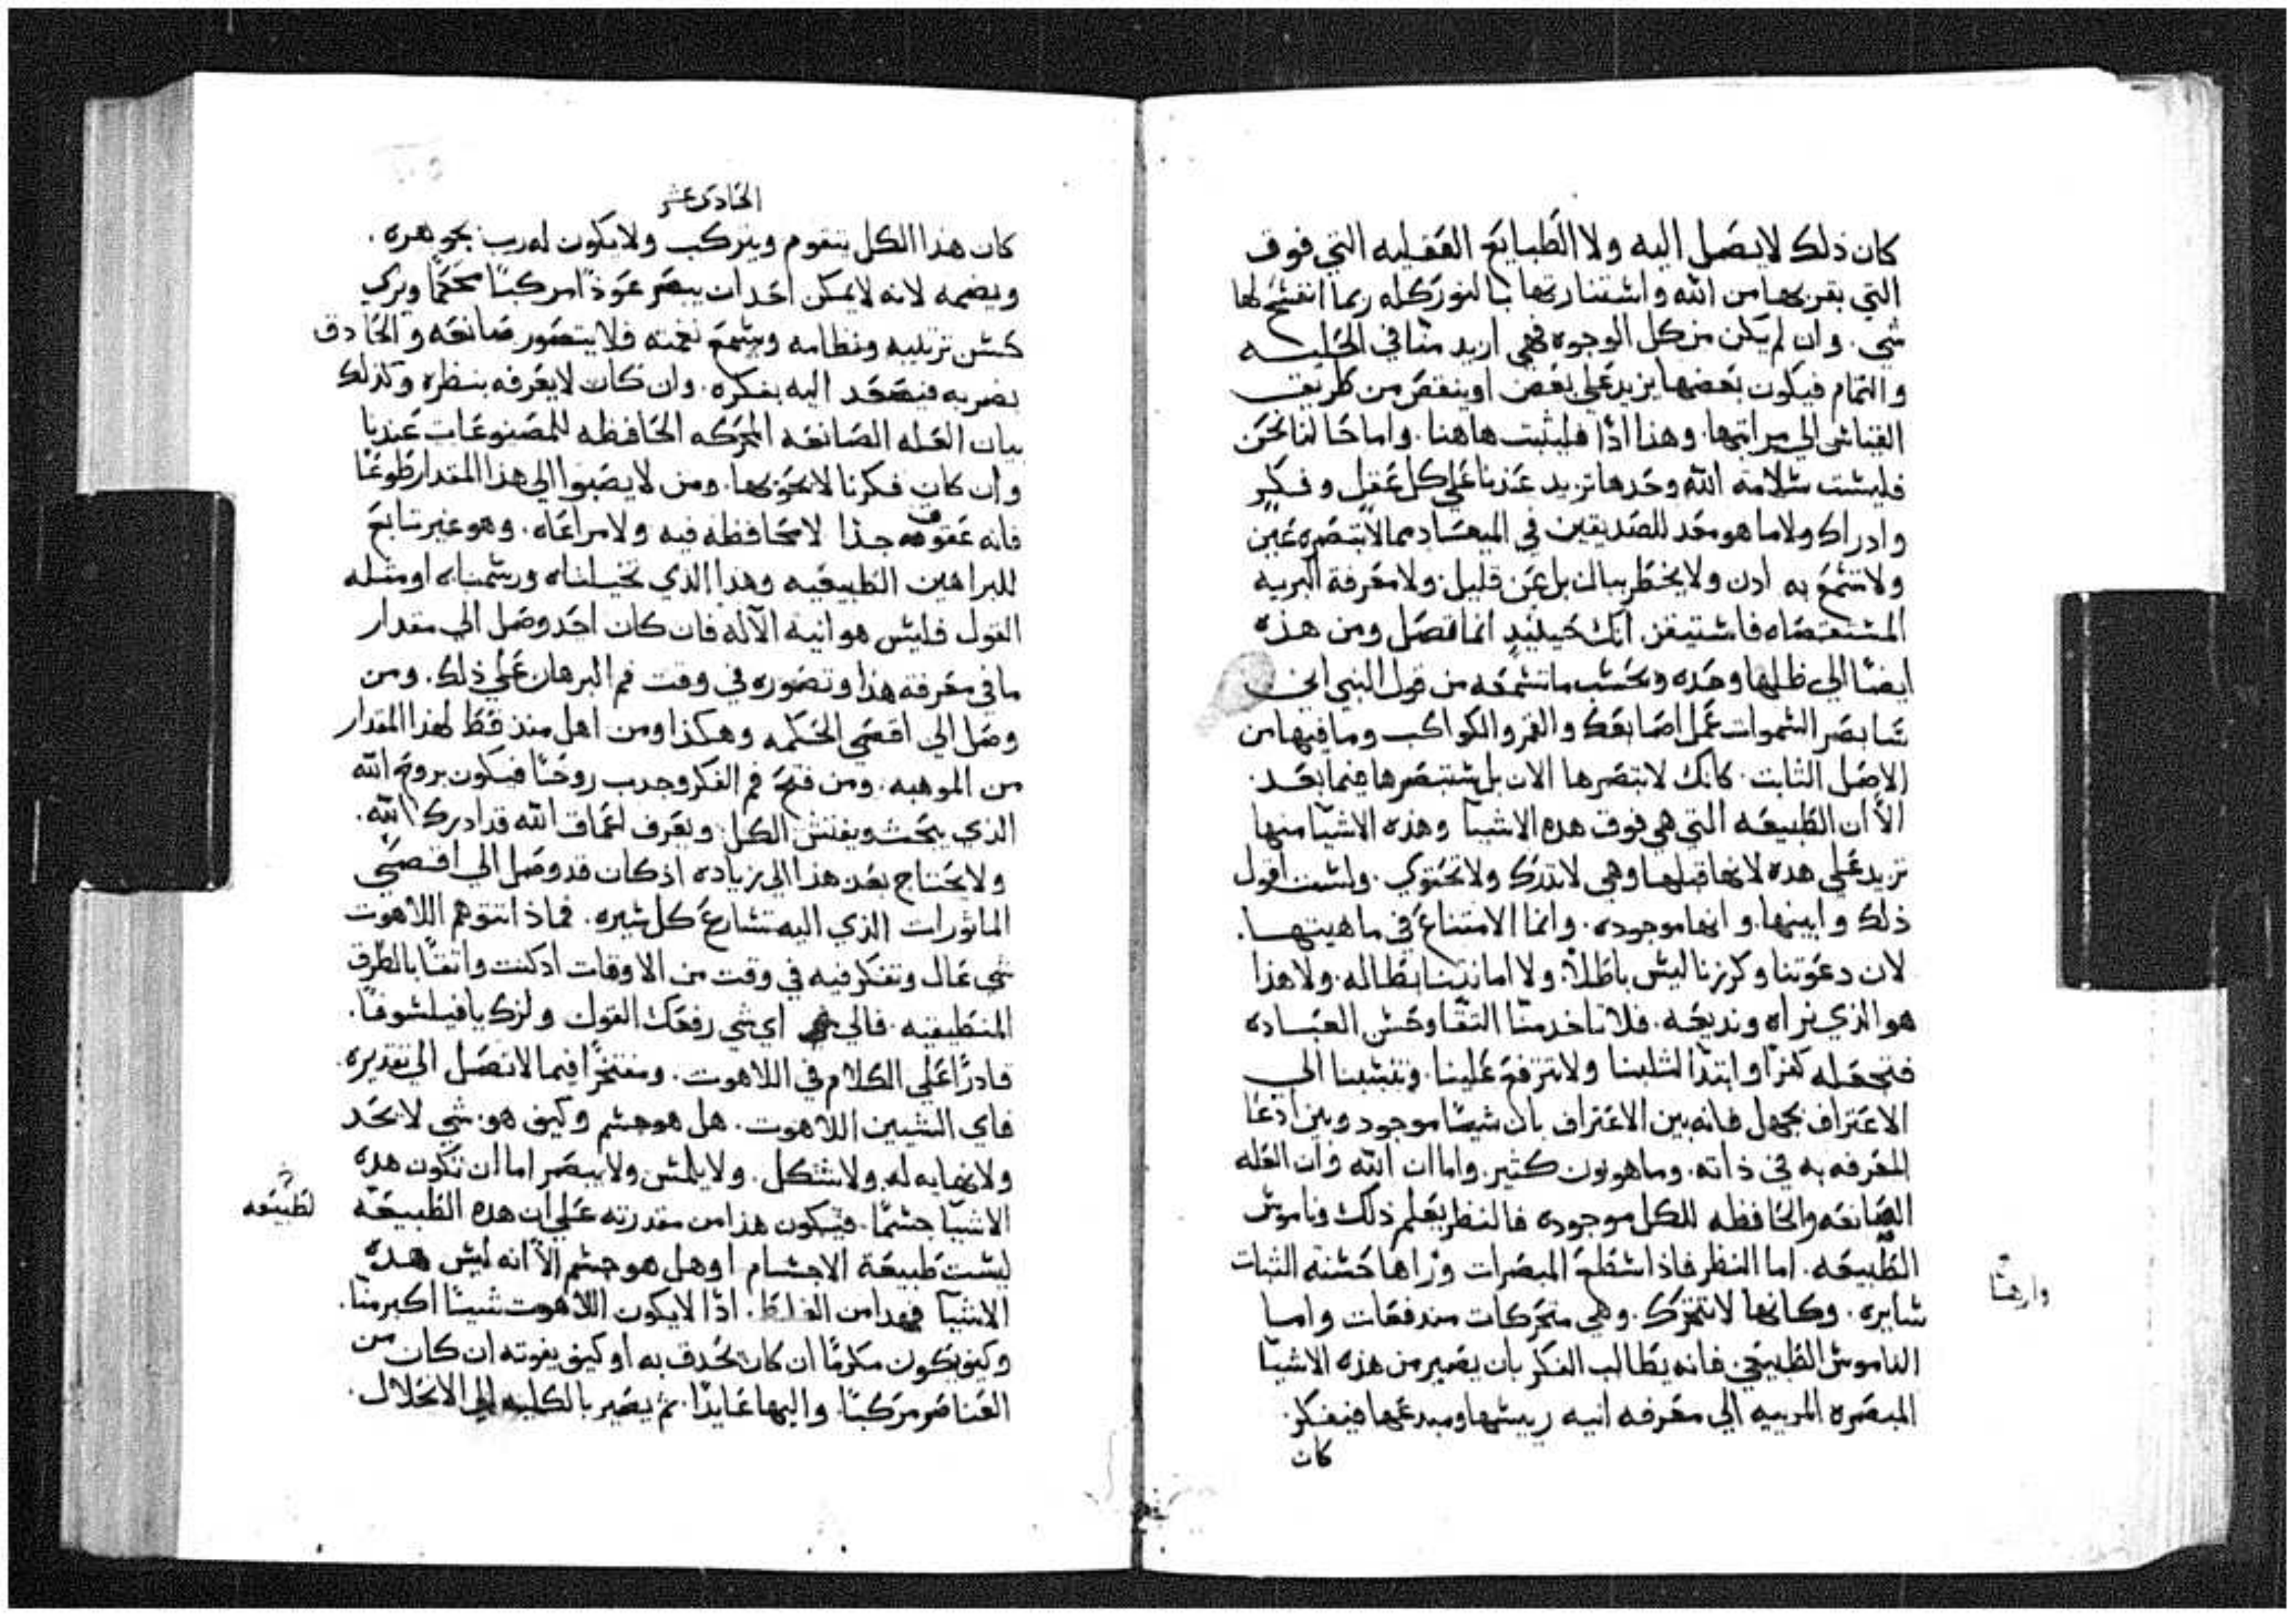 كان ذلك لا يصل اليه ولا الطبايع العقليه التي فوق
التي بقربها من الله واشتنارتها بالنور كله ربما انفتح لها
شي. وان لم يكن من كل الوجوه فهي ازيد منا في الجليه
والتمام فيكون بعضها يزيد علي بعض او ينقص من طريق
القياس الي مراتبها. وهذا اذًا فليثبت هاهنا. واما حالنا نحن
فليست سلامة الله وحدها تزيد عندنا علي كل عقل وفكر
وادراك ولا ما هو معد للصديقين في الميعاد مما لا تبصره عين
ولا تسمع به ادن ولا يخطر ببال بل عن قليل. ولا معرفة البريه
المستقصاه فاستيقن انك حينيذٍ انما تصل ومن هذه
ايضًا الي ظلها وحده وبحسب ما تسمعه من قول النبي اني
سابصر السموات عمل اصابعك والقمر والكواكب وما فيها من
الاصل الثابت. كانك لا تبصرها الان بل ستبصرها فيما بعد.
الا ان الطبيعه التي هي فوق هده الاشيا وهذه الاشيا منها
تزيد علي هده لانها قبلها وهي لا تدرك ولا تحتوي. ولست اقول
ذلك وابينها. وانها موجوده. وانما الامتناع في ماهيتها.
لان دعوتنا وكرزنا ليس باطلاً. ولا امانتنا بطاله. ولا هذا
هو الذي نراه ونديعه. فلا تاخد منا التقا وحسن العباده
فتجعله كفرًا وابتدا لثلبنا ولا تترفع علينا. وتنسبنا الي
الاعتراف بجهل فانه بين الاعتراف بان شيئًا موجود وبين ادعا
المعرفه به في ذاته. وما هو بون كثير. واما ان الله وان العله
الصانعه والحافظه للكل موجوده فالنظر يعلم ذلك وناموس
الطبيعه. اما النظر فاذا استطلع المبصرات وراها حسنه الثبات
وارهنا
سايره. وكانها لا تتحرك. وهي متحركات مندفعات واما
الناموس الطبيعي. فانه يطالب الفكر بان يصير من هذه الاشيا
المبصره المربيه الي معرفه انيه رييسها ومبدعها فيفكر.
كان
الحادى عشر
كان هذا الكل يتقوم ويتركب ولا يكون له رب يجوهره.
ويضمه لانه لا يمكن احد ان يبصر عودًا مركبًا محكمًا ويري
حسن ترتيبه ونظامه ويسمع نغمته فلا يتصور صانعه والحادق
بضربه فيصعد اليه بفكره. وان كان لا يعرفه بنظره وكذلك
بيان العله الصانعه المحركه الحافظه للمصنوعات عندنا
وان كان فكرنا لا يحويها. ومن لا يصبوا الي هذا المقدار طوعًا
فانه عقوق جدا لا محافظه فيه ولا مراعاه. وهو غير تابع
للبراهين الطبيعيه وهذا الذي تخيلناه ورسمناه او مثله
القول فليس هو انيه الآله فان كان احد وصل الي مقدار
ما في معرفة هذا وتصوره في وقت فم البرهان علي ذلك. ومن
وصل الي اقصي الحكمه وهكذا ومن اهل منذ قط لهذا المقدار
من الموهبه. ومن فتح فم الفكر وجدب روحًا فيكون بروح الله
الذي يبحث ويفتش الكل ويعرف اعماق الله قد ادرك الله.
ولا يحتاج بعد هذا الي زياده اذ كان قد وصل الي اقصي
الماثورات الذي اليه تسارع كل سيره. فماذ اتتوهم اللاهوت
شي عال وتفكر فيه في وقت من الاوقات ادكنت واثقًا بالطرق
المنطيقيه. فالي اي شي رفعك القول ولزك يا فيلسوفًا.
قادرًا علي الكلام في اللاهوت. ومفتخرًا فيما لا تصل الي تقديره.
فاي الشيين اللاهوت. هل هو جسم وكيف هو. شي لا يحد
ولا نهايه له. ولا شكل. ولا يلمس ولا يبصر اما ان تكون هده
الاشيا جسمًا. فيكون هذا من مقدرته علي ان هده الطبيعه
لطبيعه
ليست طبيعة الاجسام او هل هو جسم الا انه ليس هده
الاشيا فهدا من الغلظ. اذًا لا يكون اللاهوت شيئًا اكبر منا.
وكيف يكون مكرمًا ان كان يحدق به او كيف يفوته ان كان من
العناصر مركبًا. واليها عايدًا. ثم يصير بالكليه الي الانحلال.